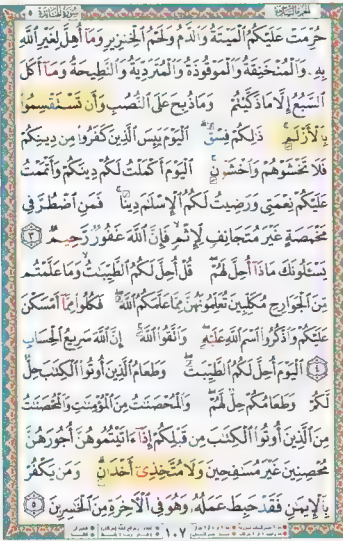 سُورَةُ المَائِدَةِ ٥
حُرِّمَتْ عَلَيْكُمُ الْمَيْتَةُ وَالدَّمُ وَلَحْمُ الْخِنزِيرِ وَمَا أُهِلَّ لِغَيْرِ اللَّهِ
بِهِ وَالْمُنْخَنِقَةُ وَالْمَوْقُوذَةُ وَالْمُتَرَدِّيَةُ وَالنَّطِيحَةُ وَمَا أَكَلَ
السَّبُعُ إِلَّا مَا ذَكَّيْتُمْ وَمَا ذُبِحَ عَلَى النُّصُبِ وَأَن تَسْتَقْسِمُوا
بِالْأَزْلَٰمِ ذَٰلِكُمْ فِسْقٌ الْيَوْمَ يَئِسَ الَّذِينَ كَفَرُوا مِن دِينِكُمْ
فَلَا تَخْشَوْهُمْ وَاخْشَوْنِ الْيَوْمَ أَكْمَلْتُ لَكُمْ دِينَكُمْ وَأَتْمَمْتُ
عَلَيْكُمْ نِعْمَتِي وَرَضِيتُ لَكُمُ الْإِسْلَٰمَ دِينًا فَمَنِ اضْطُرَّ فِي
مَخْمَصَةٍ غَيْرَ مُتَجَانِفٍ لِّإِثْمٍ فَإِنَّ اللَّهَ غَفُورٌ رَّحِيمٌ ٣
يَسْـَٔلُونَكَ مَاذَا أُحِلَّ لَهُمْ قُلْ أُحِلَّ لَكُمُ الطَّيِّبَٰتُ وَمَا عَلَّمْتُم
مِّنَ الْجَوَارِحِ مُكَلِّبِينَ تُعَلِّمُونَهُنَّ مِمَّا عَلَّمَكُمُ اللَّهُ فَكُلُوا مِمَّا أَمْسَكْنَ
عَلَيْكُمْ وَاذْكُرُوا اسْمَ اللَّهِ عَلَيْهِ وَاتَّقُوا اللَّهَ إِنَّ اللَّهَ سَرِيعُ الْحِسَابِ
٤ الْيَوْمَ أُحِلَّ لَكُمُ الطَّيِّبَٰتُ وَطَعَامُ الَّذِينَ أُوتُوا الْكِتَٰبَ حِلٌّ
لَّكُمْ وَطَعَامُكُمْ حِلٌّ لَّهُمْ وَالْمُحْصَنَٰتُ مِنَ الْمُؤْمِنَٰتِ وَالْمُحْصَنَٰتُ
مِنَ الَّذِينَ أُوتُوا الْكِتَٰبَ مِن قَبْلِكُمْ إِذَا ءَاتَيْتُمُوهُنَّ أُجُورَهُنَّ
مُحْصِنِينَ غَيْرَ مُسَٰفِحِينَ وَلَا مُتَّخِذِي أَخْدَانٍ وَمَن يَكْفُرْ
بِالْإِيمَٰنِ فَقَدْ حَبِطَ عَمَلُهُ وَهُوَ فِي الْـَٔاخِرَةِ مِنَ الْخَٰسِرِينَ ٥
١٠٧